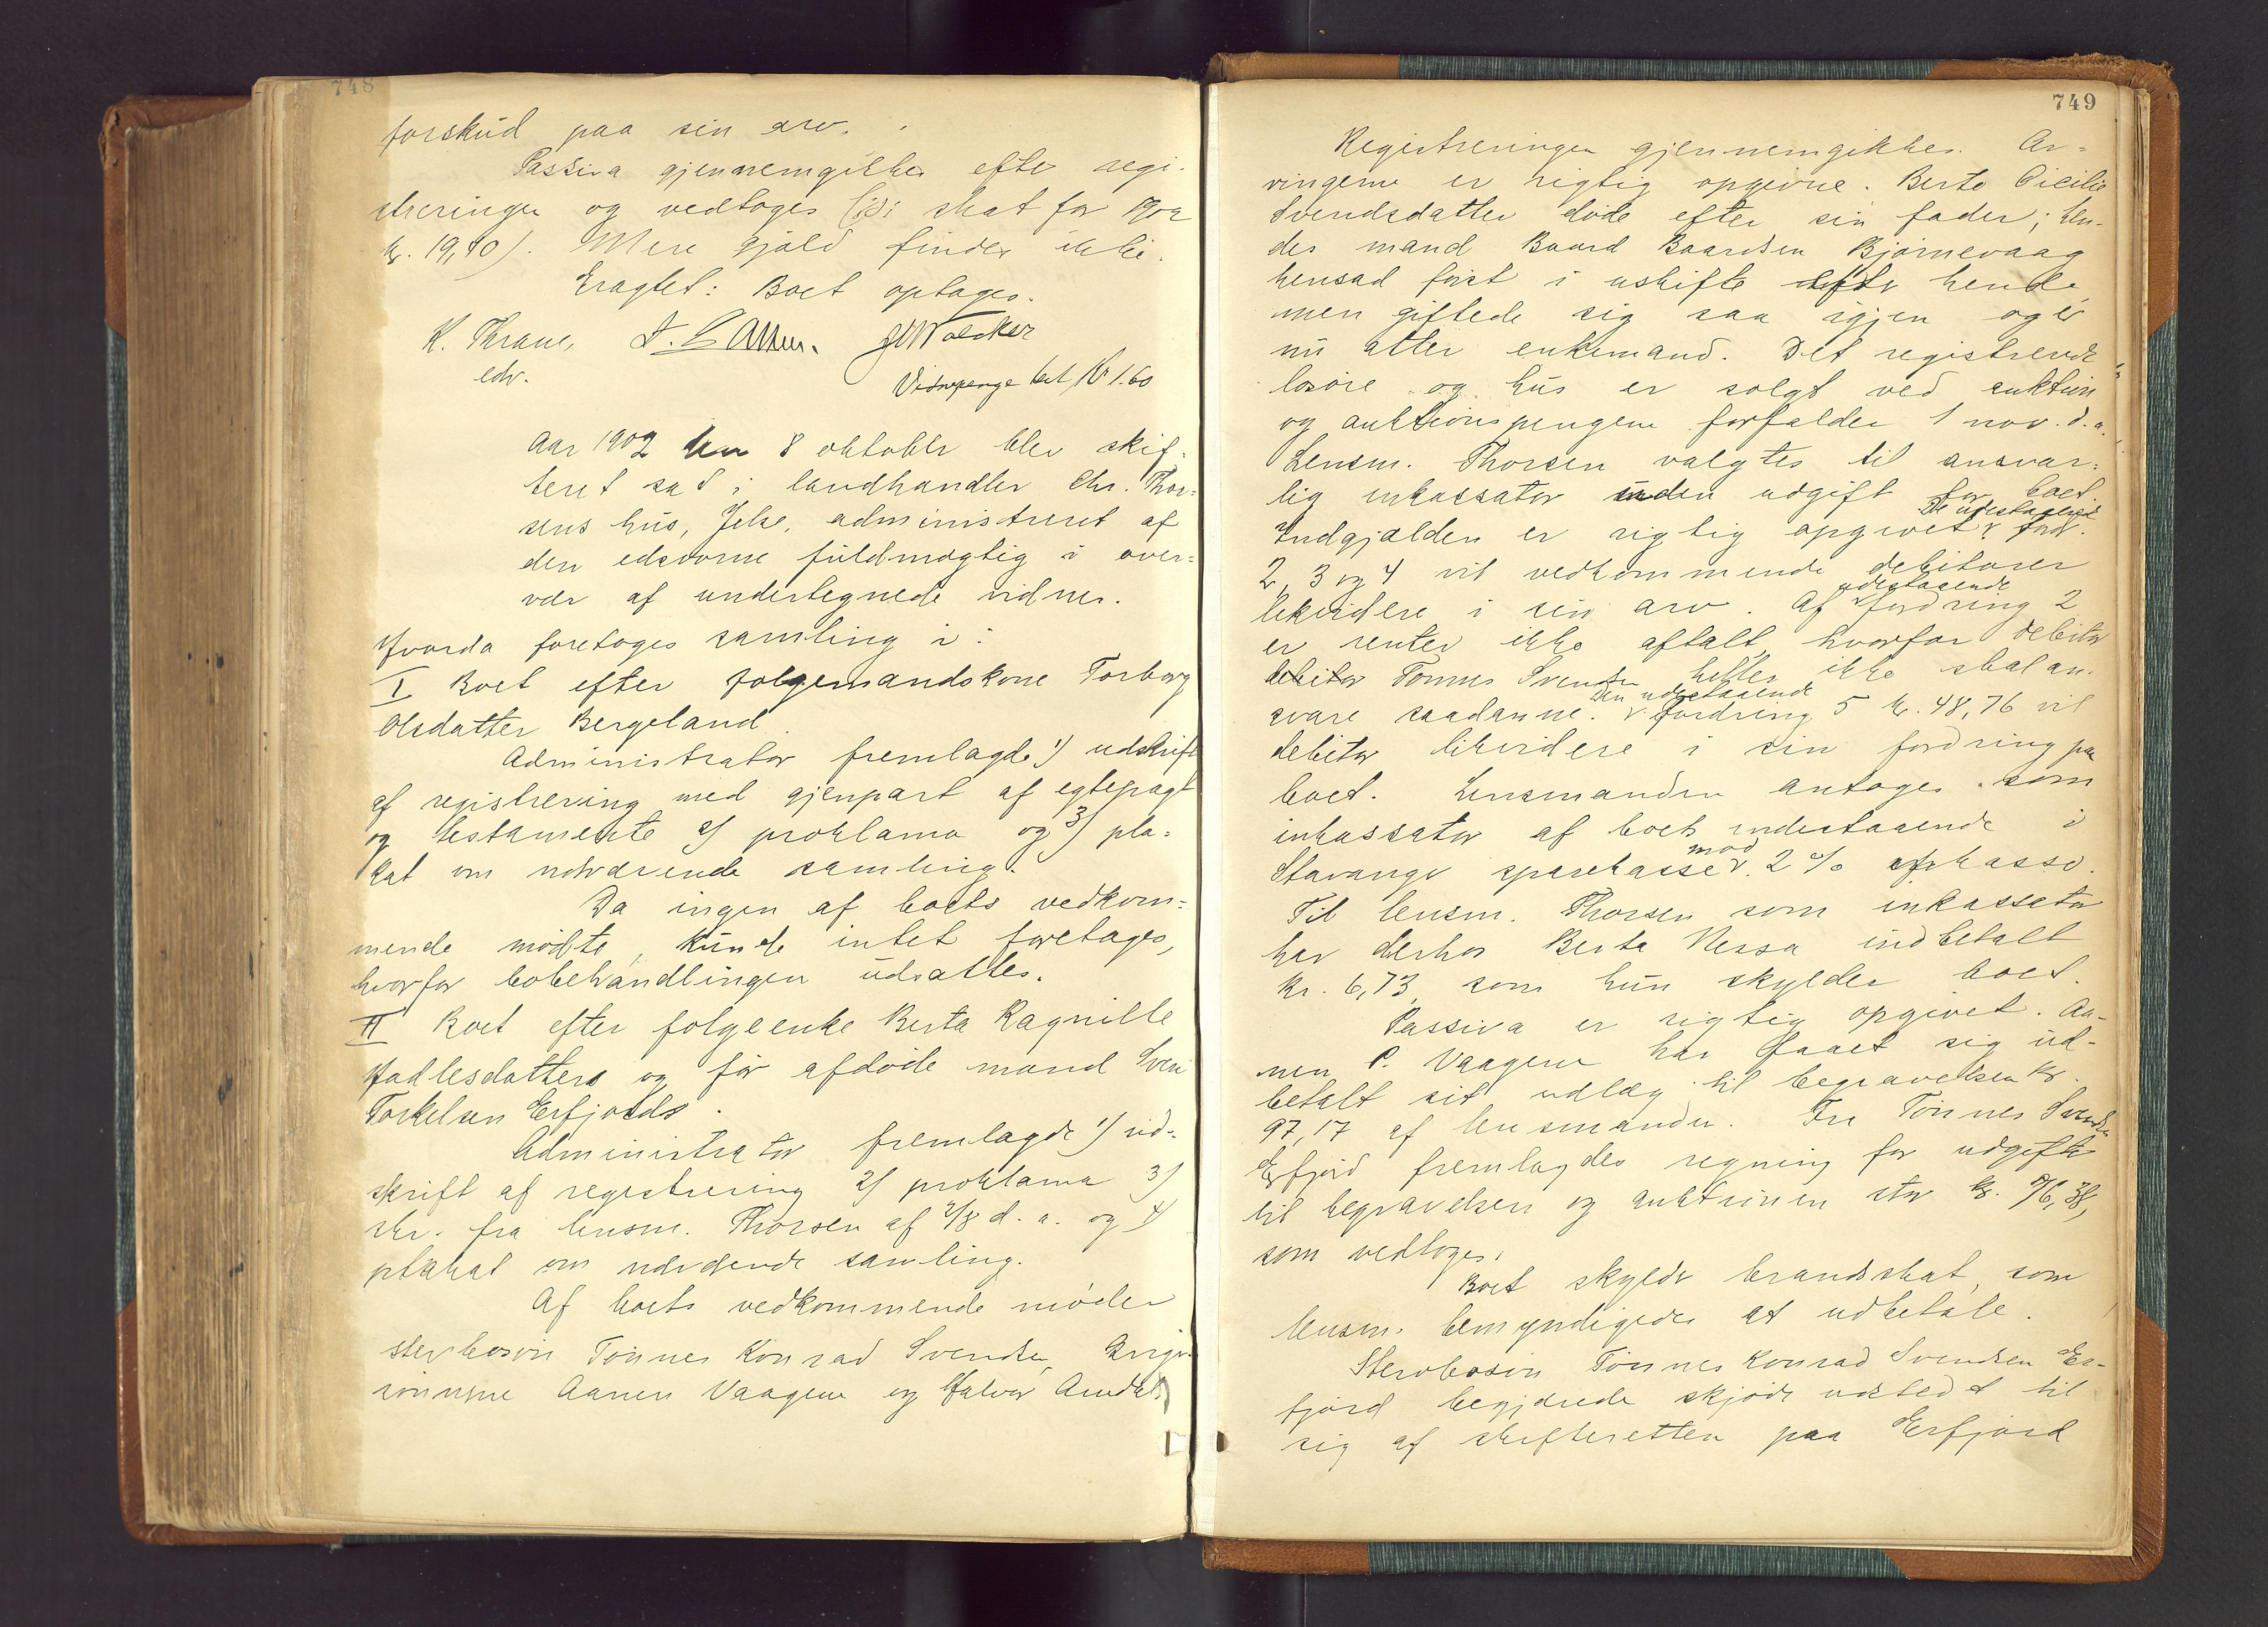 748
forskud paa sin arv.
Passiva gjennemgikkes efter regi-
streringen og vedtoges (ɔ: skat for 1902
kr. 19,40). Mere gjæld findes ikke.
Eragtet: Boet optages.
K. Thrane,
edv.
Vidnepenge bet Kr 1.60
Aar 1902 den 8 oktober blev skif-
teret sat i landhandler Chr. Thor-
sens hus, Jelse, administreret af
den edsvorne fuldmægtig i over-
vær af undertegnede vidner.
Hvorda foretoges samling i:
I Boet efter folgemandskone Torborg
Olsdatter Bergeland.
Administrator fremlagde 1) udskrift
af registrering med gjenpart af egtepagt
og testamente 2) proklama og 3) pla-
kat om nærværende samling.
Da ingen af boets vedkom-
mende mødte, kunde intet foretages,
hvorfor bobehandlingen udsattes.
II Boet efter folgeenke Berta Ragnille
Hadlesdatters og før afdøde mand Sven
Torkelsen Erfjords.
Administrator fremlagde 1) ud-
skrift af registrering 2) proklama 3)
skr. fra lensm. Thorsen af 2/8 d. a. og 4)
plakat om nærværende samling.
Af boets vedkommende møder
stervbosøn Tønnes Konrad Svendsen,
sønnerne Aanen Vaagene og Halvor Amdal.
749
Registreringen gjennemgikkes. Ar-
vingerne er rigtig opgivne. Berte Cicilie
Svendsdatter døde efter sin fader; hen-
des mand Baard Baardsen Bjørnevaag
hensad først i uskifte efter hende
men giftede sig saa igjen og er
nu atter enkemand. Det registrerede
løsøre og hus er solgt ved auktion
og auktionspengene forfalder 1 nov. d. a.
Lensm. Thorsen valgtes til ansvar-
lig inkassator uden udgift for boet.
De udestaaende
Indgjælden er rigtig opgivet. ford.
2, 3 og 4 vil vedkommende debitorer
udestaaende
likvidere i sin arv. Af fordring 2
er renter ikke aftalt, hvorfor debitor
debitor Tønnes Svendsen heller ikke skal an-
den udestaaende
svare saadanne. fordring 5 kr. 48,76 vil
debitor likvidere i sin fordring paa
boet. Lensmanden antages som
inkassator af boets indestaaende i
mod
Stavanger sparekasse 2 % inkasso.
Til lensm. Thorsen som inkassator
har derhos Berta Nessa indbetalt
kr. 6,73, som hun skylder boet.
Passiva er rigtig opgivet. Aa-
nen P. Vaagene har faaet sig ud-
betalt sit udlæg til begravelsen kr.
97,17 af lensmanden. Fra Tønnes Svendsen
Erfjord fremlagdes regning for udgifter
til begravelsen og auktionen stor kr. 76,38,
som vedtoges.
Boet skylder brandskat, som
lensm. bemyndigedes at udbetale.
Stervbosøn Tønnes Konrad Svendsen Er-
fjord begjærede skjøde udstedt til
sig af skifteretten paa Erfjord